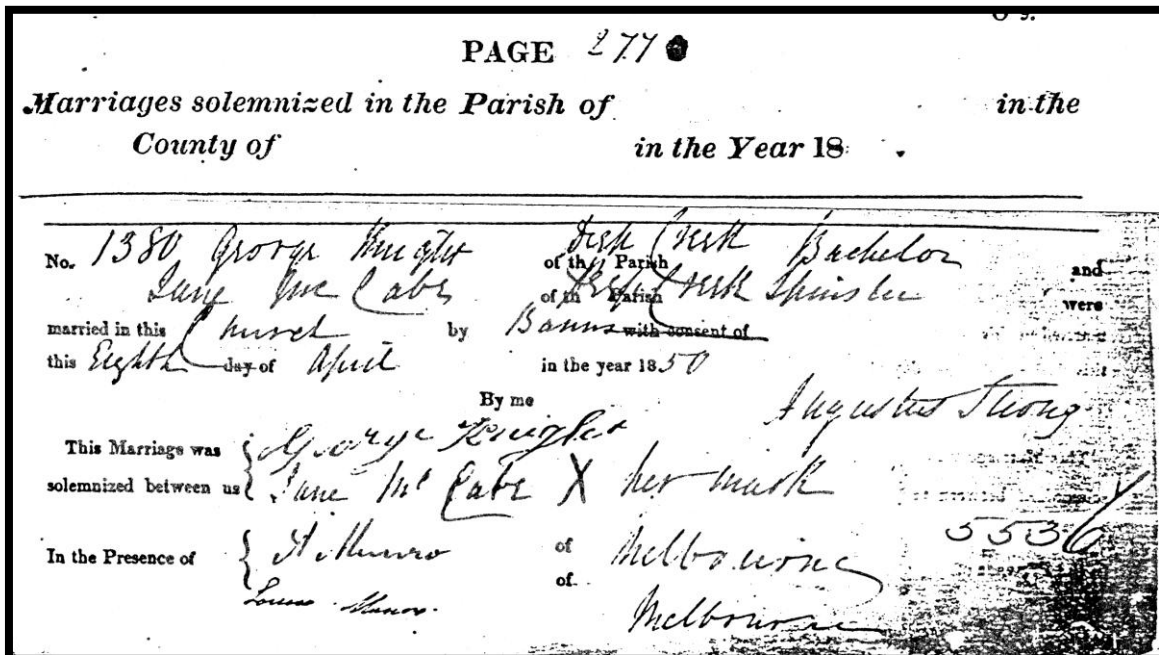 PAGE 277
Marriages solemnized in the Parish of in the
County of in the Year 18
No. 1380 George Knight of th Parish Bachelor and
Jane Mc Cabe of th Parish Spinster were
married in this Church by Banns with consent of
this Eighth day of April in the year 1850
By me Augustus Strong
This Marriage was George Knight
solemnized between us Jane Mc Cabe X her mark
553
In the Presence of A Munro of Melbourne
Louisa Munro of Melbourne